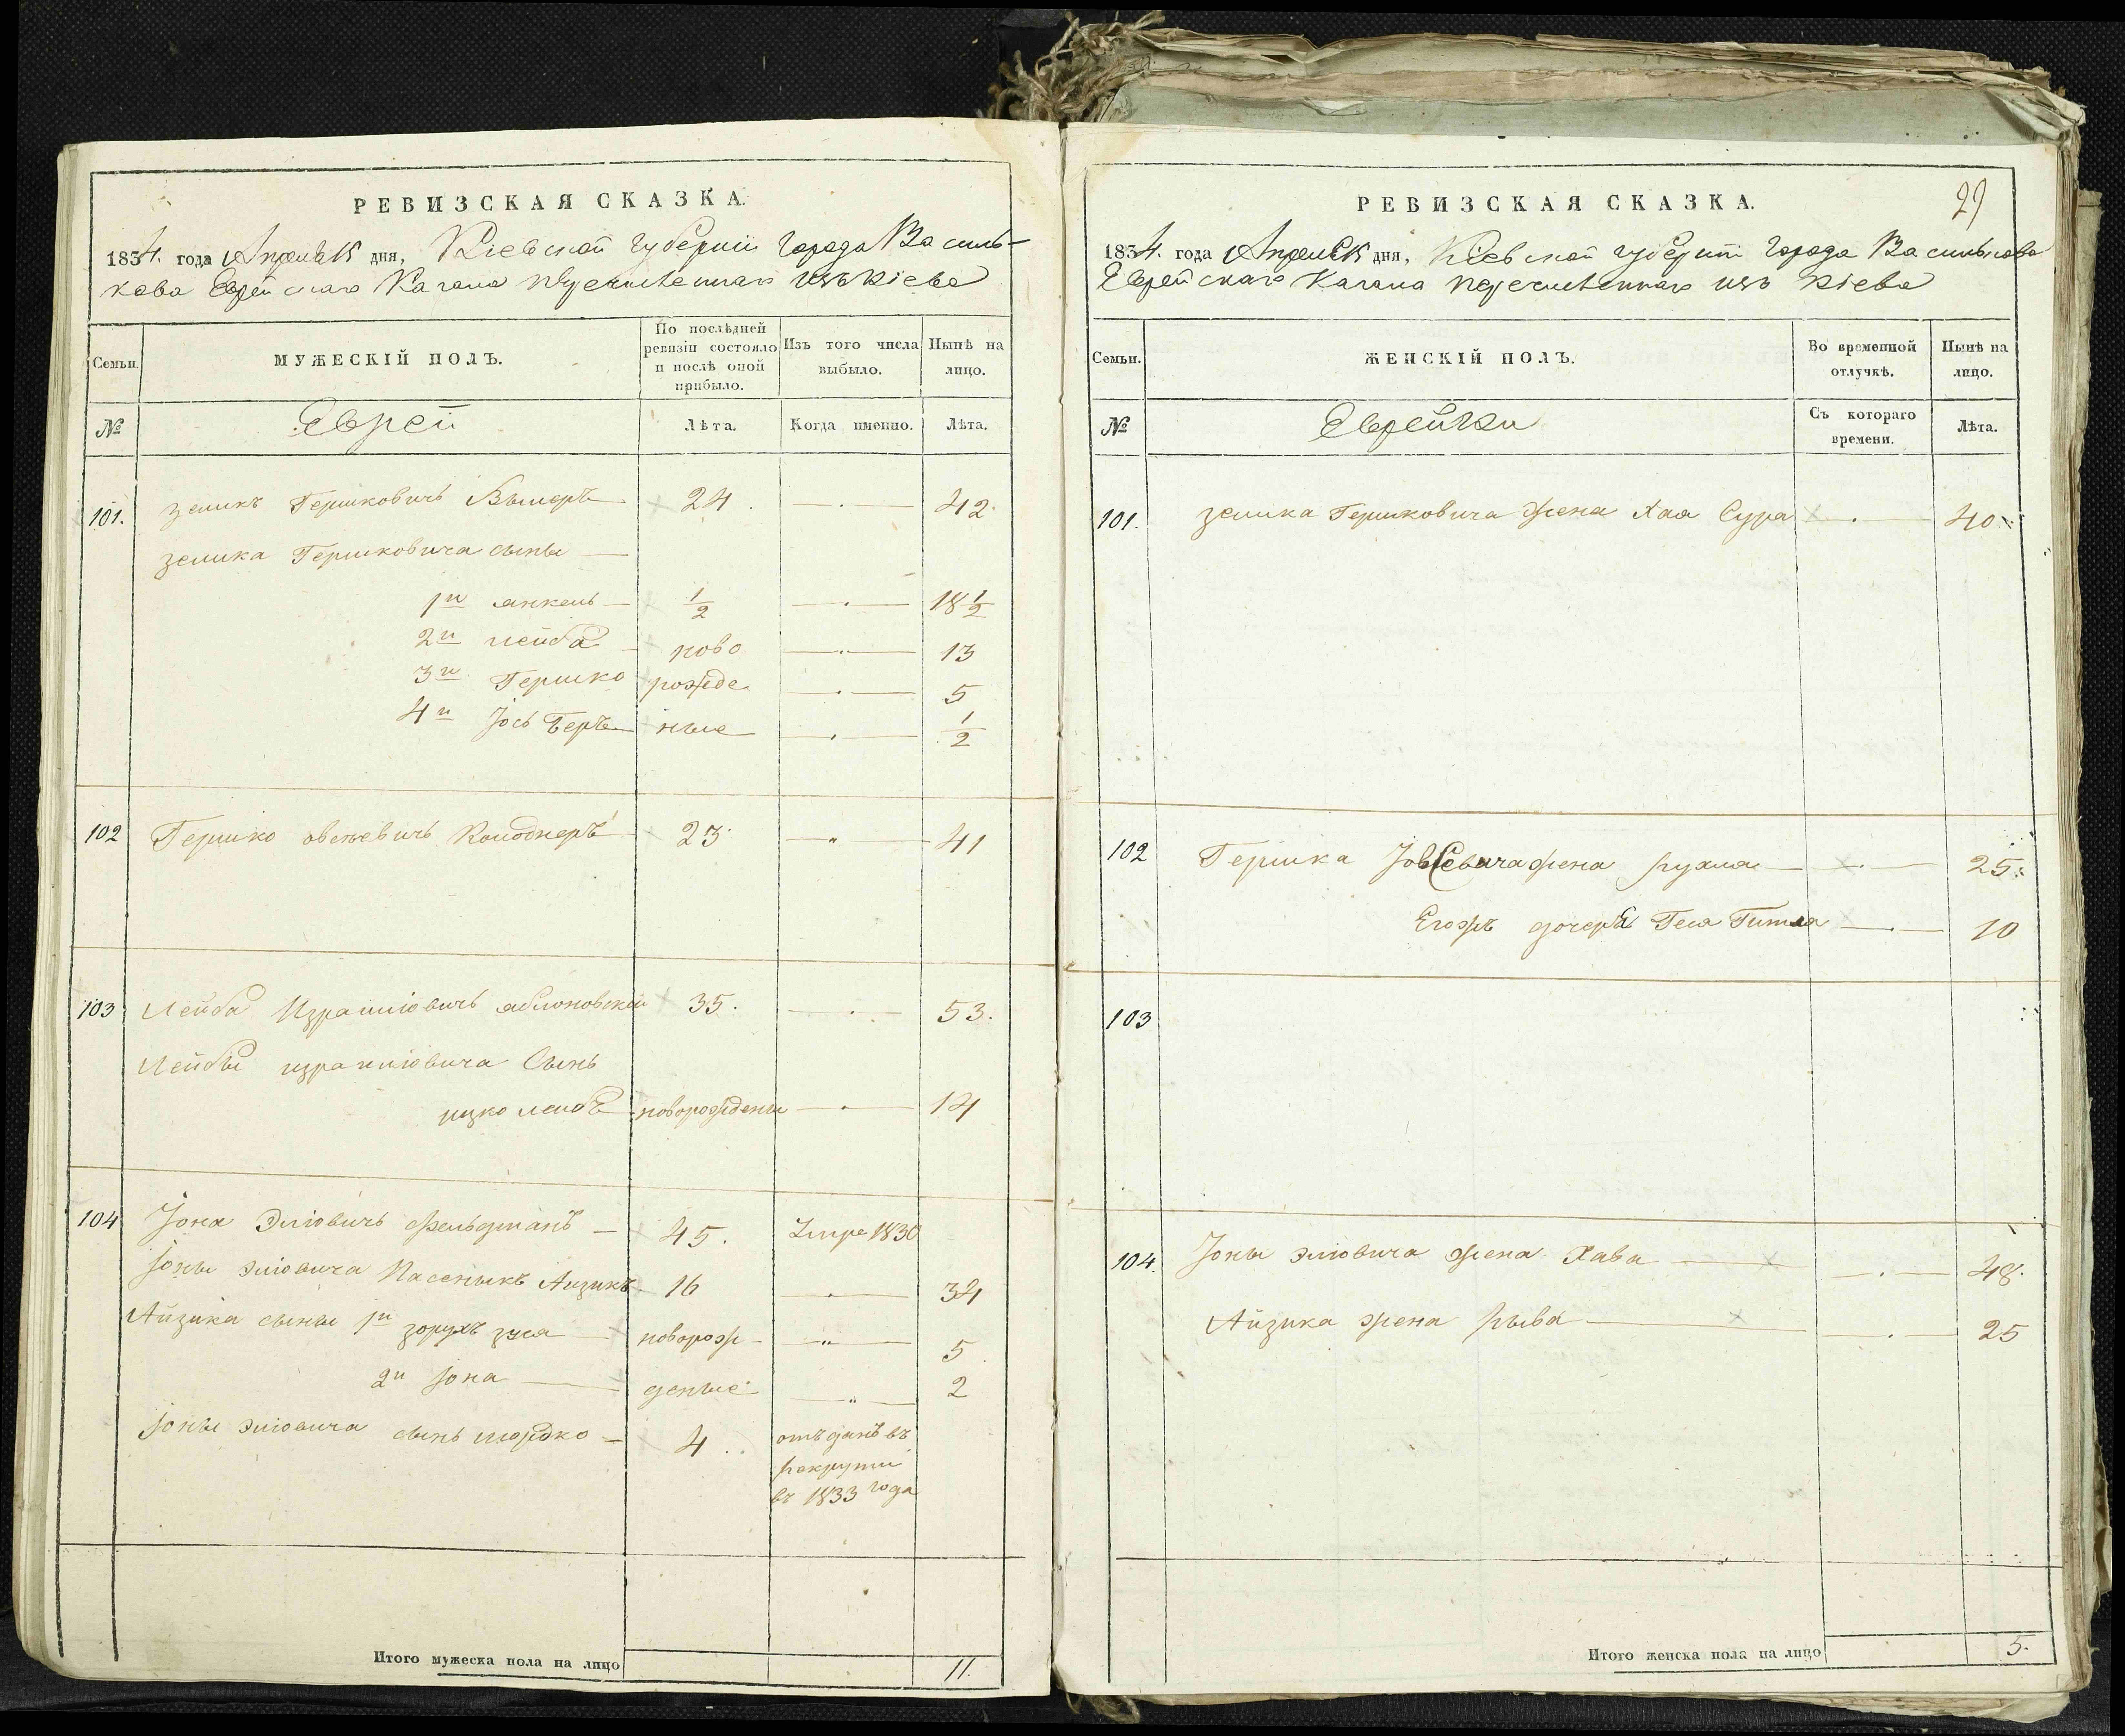 РЕВИЗСКАЯ СКАЗКА.
1834. года Апреля 15 дня, Кіевской губерніи города Василь-
кова Еврейскаго Кагала перечисленнаго изъ Кіева
Семьи.
МУЖЕСКІЙ ПОЛЪ.
По послѣдней ревизіи состояло и послѣ оной прибыло.
Изъ того числа выбыло.
Нынѣ на лицо.
№
Еврей
Лѣта.
Когда именно.
Лѣта.
101. Зеликъ Гершковичъ 24. 42.
Зелика Гершковича сыны
1й Янкель 1/2 18 1/2
2й Лейба ново 13
3й Гершко рожде 5
4й Іось Беръ ные 1/2
102 Гершко Овсѣевичъ Колоднеръ 23 41
103 Лейба Израиліовичъ Яблоновскій 35. 53.
Лейбы Израиліовича Сынъ
Ицко Лейбъ новорожденый 14
104 Іона Эліовичъ Фельдманъ 45. Умре 1830
Іоны Эліовича Пасеныкъ Айзикъ 16 34
Айзика сыны 1й Зорухъ Зуся новорож- 5
2й Іона деные 2
Іоны Эліовича сынъ Мордко 4 отъданъ въ
рекруты
въ 1833 года
Итого мужеска пола на лицо 11.
29
РЕВИЗСКАЯ СКАЗКА.
1834. года Апреля 15 дня, Кіевской губерніи города Василькова
Еврейскаго Кагала перечисленнаго изъ Кіева
Семьи.
ЖЕНСКІЙ ПОЛЪ.
Во временной отлучкѣ.
Нынѣ на лицо.
№
Еврейки
Съ котораго времени.
Лѣта.
101. Зелика Гершковича жена Хая Сура 40
102 Гершка Іовсевича жена Рухля 25
Егожъ дочерь Геся Гитля 10
103
104. Іоны Эліовича жена Хава 48.
Айзика жена Рыва 25
Итого женска пола на лицо 5.